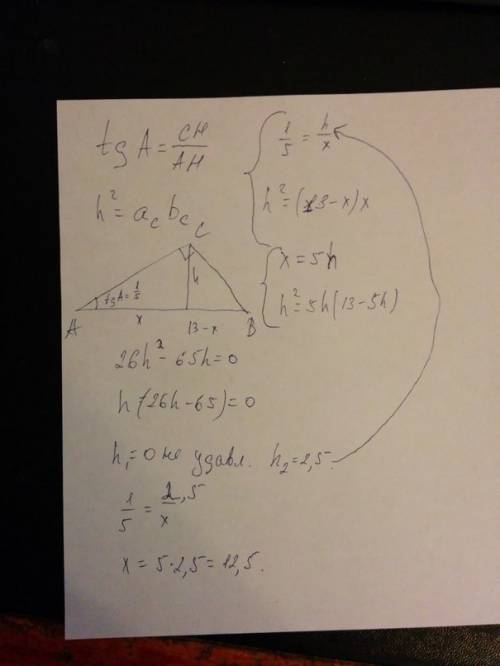 tg A = CH/AH
h² = a_c b_c
{ 1/5 = h/x
h² = (13-x)x
{ x = 5h
h² = 5h(13-5h)
C
tgA = 1/5
h
A
x
13-x
B
26h² - 65h = 0
h(26h-65) = 0
h₁ = 0 не удавл. h₂ = 2,5.
1/5 = 2,5/x
x = 5·2,5 = 12,5.